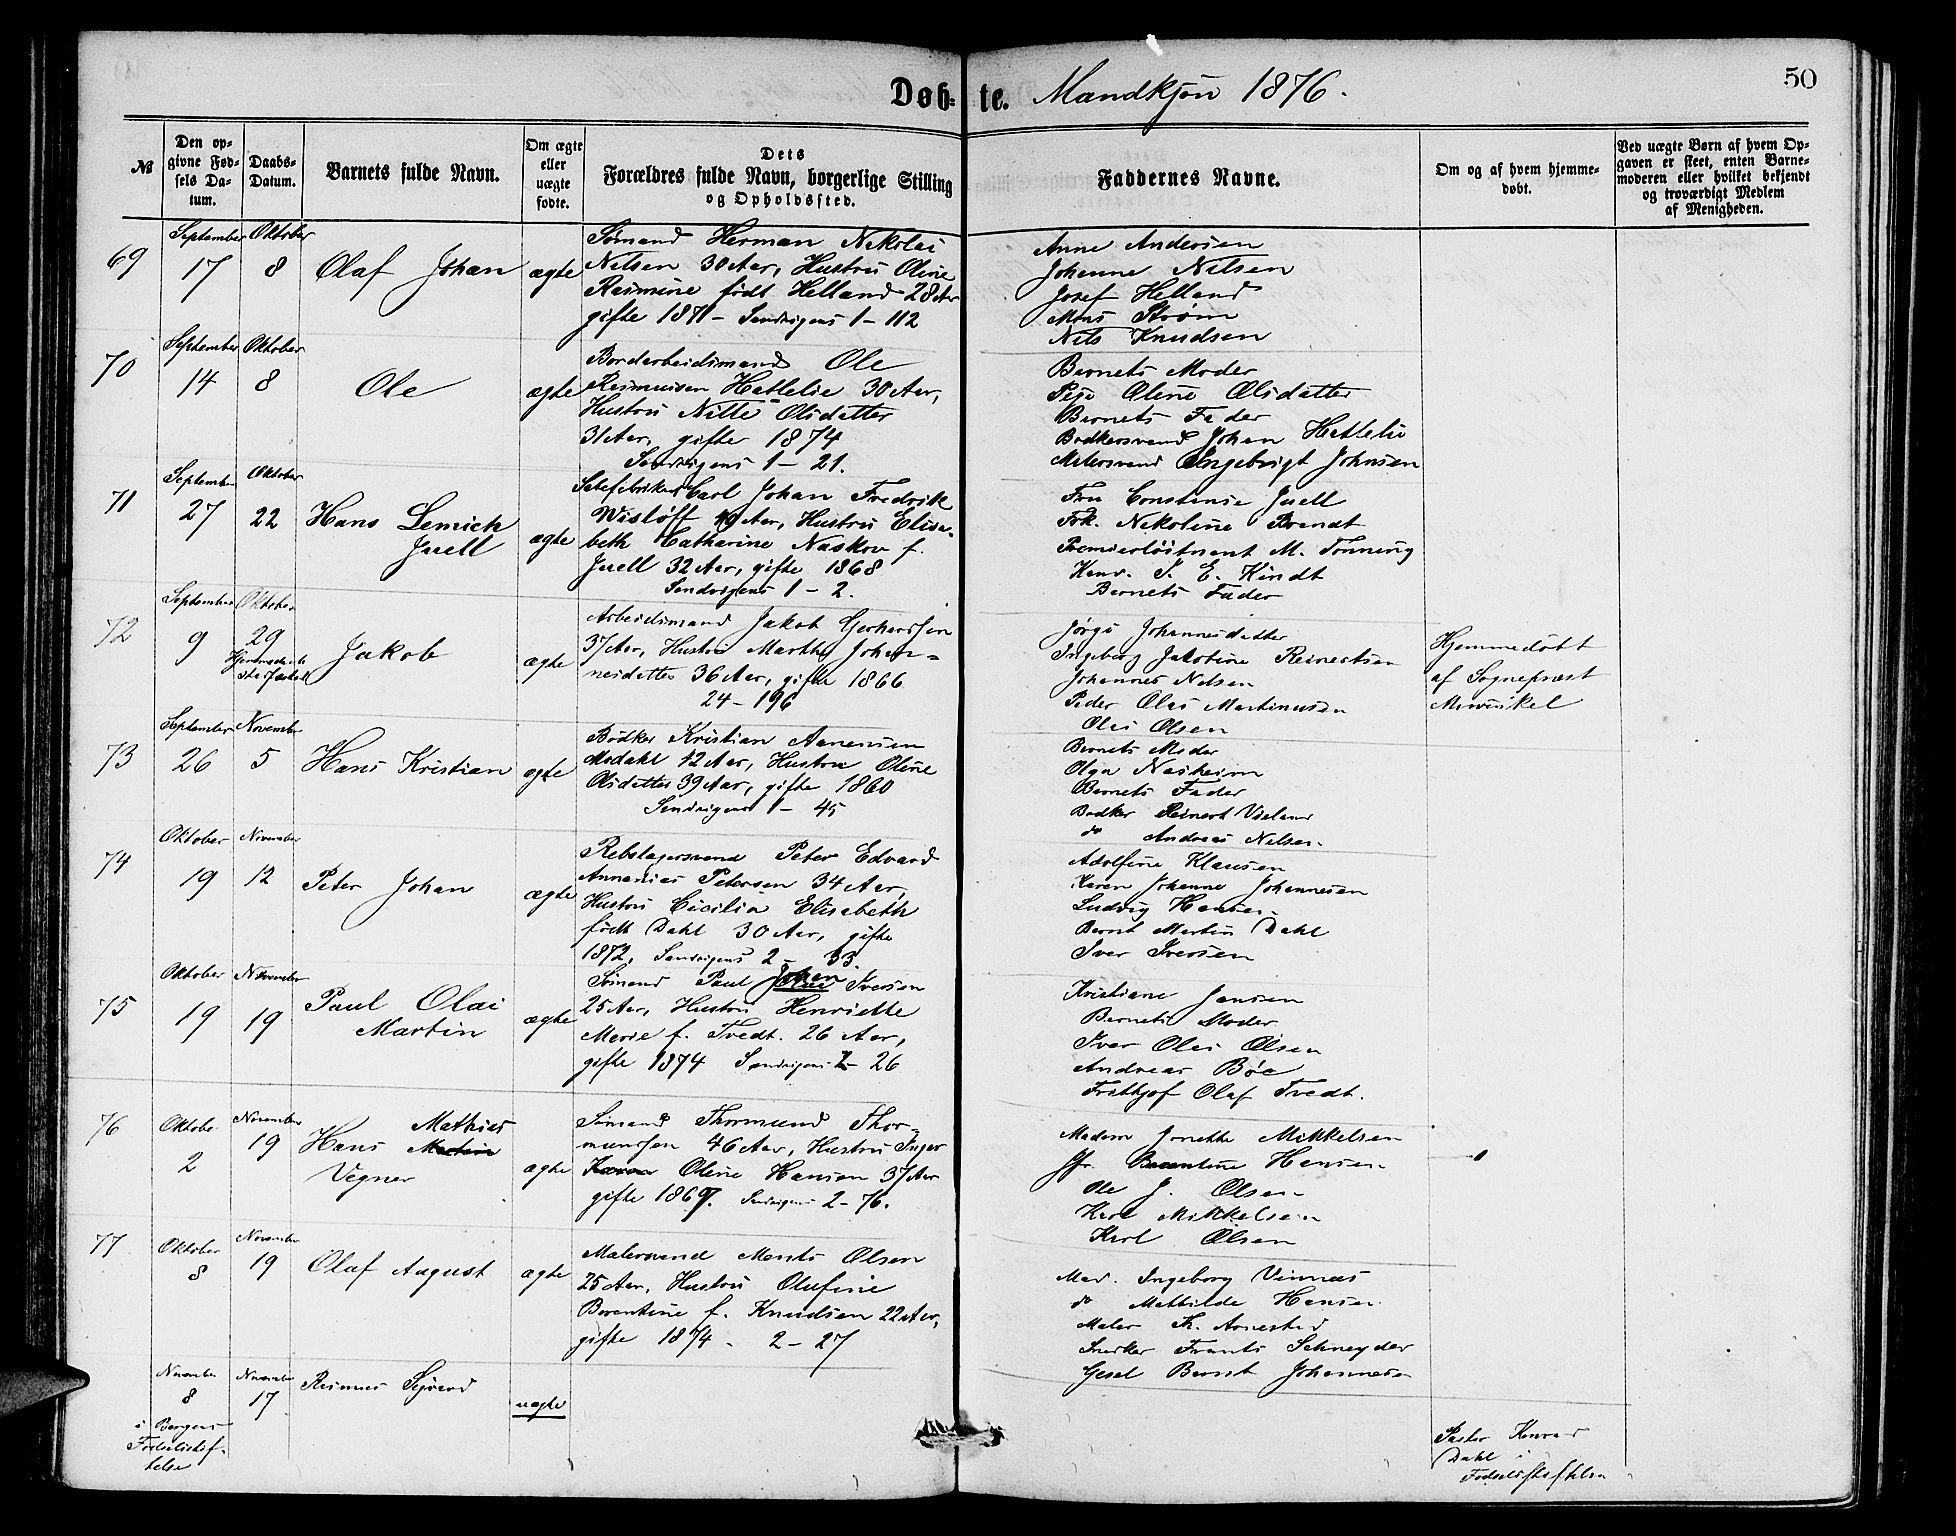 50
Døb- te. Mandkjøn 1876.
№
Den opgivne Fødsels Datum.
Daabs-Datum.
Barnets fulde Navn.
Om ægte eller uægte fødte.
Dets Forældres fulde Navn, borgerlige Stilling og Opholdssted.
Faddernes Navne.
Om og af hvem hjemmedøbt.
Ved uægte Børn af hvem Opgaven er skeet, enten Barnemoderen eller hvilket bekjendt og troværdigt Medlem af Menigheden.
69
September 17
Oktober 8
Olaf Johan
ægte
Sømand Herman Nikolai
Nilsen 30 Aar, Hustru Oline
Rasmine født Helland 28 Aar
gifte 1871 - Sandvigens 1 - 112
Anne Andersen
Johanne Nilsen
Josef Helland
Mons Strøm
Nils Knudsen
70
September 14
Oktober 8
Ole
ægte
Bordarbeidsmand Ole
Rasmusen Hatlelie 30 Aar,
Hustru Nille Olsdatter
31 Aar, gifte 1874
Sandvigens 1 - 21.
Barnets Moder
Pige Oline Olsdatter
Barnets Fader
Bødkersvend Johan Hatlelie
Malersvend Ingebrigt Johnsen
71
September 27
Oktober 22
Hans Lemich
Juell
ægte
Carl Johan Fredrik
Wisløff 40 Aar, Hustru Elisa-
beth Catharine Naskov f.
Juell 32 Aar, gifte 1868
Sandvigens 1 - 2.
Fru Constance Juell
Frk. Nikoline Brandt
Premierløitnant M. Tønning
S. E. Kindt
Barnets Fader
72
September 9
Oktober 29
Jakob
ægte
Arbeidsmand Jakob Gerhardsen
37 Aar, Hustru Marthe Johan-
nesdatter 36 Aar, gifte 1866
24 - 196
Jørgi Johannesdatter
Ingeborg Jakobine Reinertsen
Johannes Nilsen
Peder Olai Martinusen
Olai Olsen
Hjemmedøbt
af Sognepræst
Mowinkel
73
September 26
November 5
Hans Kristian
ægte
Bødker Kristian Aanensen
Modahl 42 Aar, Hustru Oline
Olsdatter 39 Aar, gifte 1860
Sandvigens 1 - 45
Barnets Moder
Olga Nasheim
Barnets Fader
Bødker Reinert Vieland
do Andreas Nilsen
74
Oktober 19
November 12
Peter Johan
ægte
Rebslagersvend Peter Edvard
Annanias Petersen 34 Aar,
Hustru Cicilia Elisabeth
født Dahl 30 Aar, gifte
1872, Sandvigens 2 - 33.
Adolfine Klausen
Karen Johanne Johannesen
Ludvig Hansen
Bernt Martin Dahl
Iver Iversen
75
Oktober 19
November 19
Paul Olai
Martin
ægte
Sømand Paul Johan Iversen
25 Aar, Hustru Henriette
Marie f. Tvedt. 26 Aar,
gifte 1874 Sandvigens 2 - 26
Kristiane Jansen
Barnets Moder
Iver Olai Olsen
Andreas Bøe
Frithjof Olaf Tvedt.
76
Oktober 2
November 19
Hans Mathias
Martin
Vegner
ægte
Sømand Thormund Thor-
mundsen 46 Aar, Hustru Inger
Oline Hansen 37 Aar
gifte 1867. Sandvigens 2 - 76.
Madam Jonette Mikkelsen
Jfr. Barentine Hansen
Ole J. Olsen
Karl Mikkelsen
Karl Olsen
77
Oktober 8
November 19
Olaf August
ægte
Malersvend Ments Olsen
25 Aar, Hustru Olufine
Barentine f. Knudsen 22 Aar,
gifte 1874 - 2 - 27
Mad. Ingeborg Vinnæs
do Mathilde Hansen
Maler Th. Arnested
Snedker Frants Schneyder
Gesel Bernt Johannesen
November 8
i Bergens
Fødselsstif-
telse
November 17
Rasmus Sigvard
uægte
Pastor Konrad
Dahl i
Fødselsstiftelsen